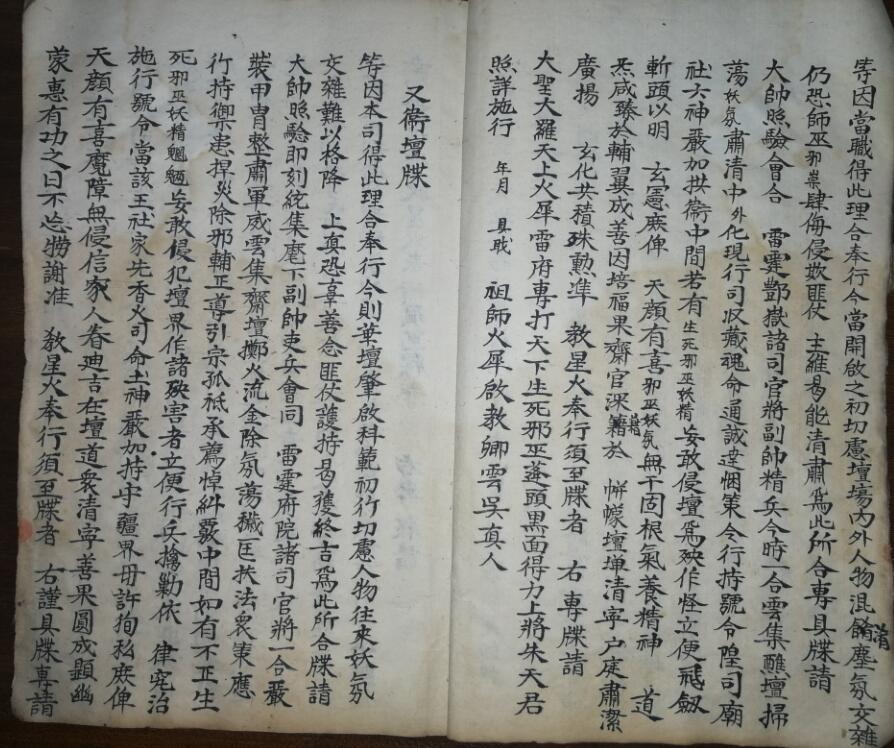 等因當職得此理合奉行今當開啟之初切慮壇場內外人物混餚淆塵氛交雜
仍恐師巫邪祟肆侮侵欺匪仗 主維曷能清肅為此所合專具牒請
大帥照驗會合 雷霆酆嶽諸司官將副帥精兵今時一合雲集醮壇掃
蕩妖氛肅清中外化現行司收藏魂命通誠達悃策令行持號令隍司廟
社六神嚴加拱衛中間若有生死邪巫妖精妄敢侵壇為殃作怪立便飛劔
斬頭以明 玄憲庶俾 天顏有喜邪巫妖氛無干固根氣養精神 道
炁咸臻於輔翼成善因培福果齋官深籍藉於 帡幪壇墠清寧户庭肅潔
廣揚 玄化共積殊勲準 教星火奉行須至牒者 右專牒請
大聖大羅天上火犀雷府專打天下生死邪巫蓬頭黑面得力上將朱天君
照詳施行 年月 具職 祖師火犀啟教卿雲吳真人
又衛壇牒
等因本司得此理合奉行今則華壇肇啟科範初行切慮人物往來妖氛
交雜難以格降 上真恐辜善念匪仗護持曷獲終吉為此所合牒請
大帥照驗即刻統集麾下副帥吏兵會同 雷霆府院諸司官將一合嚴
裝甲冑整肅軍威雲集齋壇擲火流金除氛蕩穢匡扶法衆策應
行持禦患捍災除邪輔正導引宗孤祗承薦悼糾覈中間如有不正生
死邪巫妖精魍魎妄敢侵犯壇界作諸殃害者立便行兵擒勦依 律究治
施行號令當該王社家先香火司命土神嚴加持守疆界毋許拘私庶俾
天顏有喜魔障無侵信家人眷迪吉在壇道衆清寧善果圓成顯幽
蒙惠有功之日不忘撈謝准 教星火奉行須至牒者 右謹具牒專請